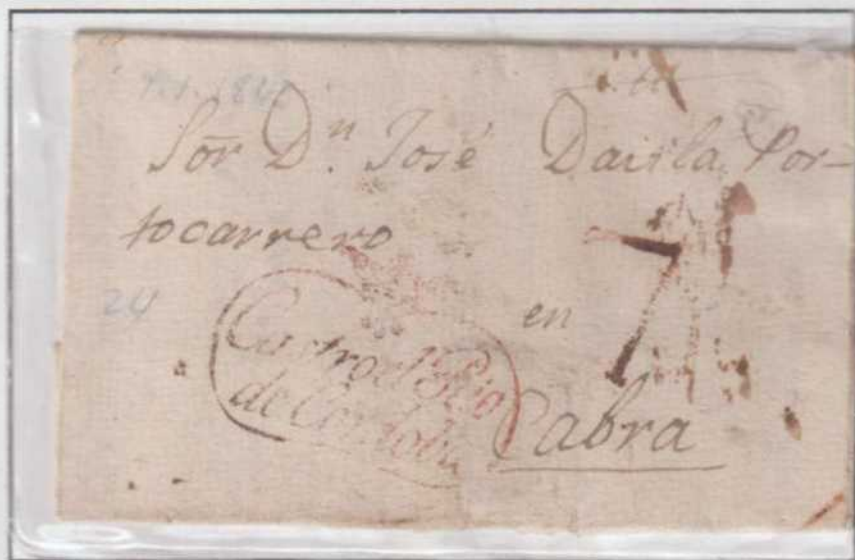 Sor Dn. José Davila, Por-
tocarrero
24
en
7
Castro el Rio
de Cordoba
Cabra